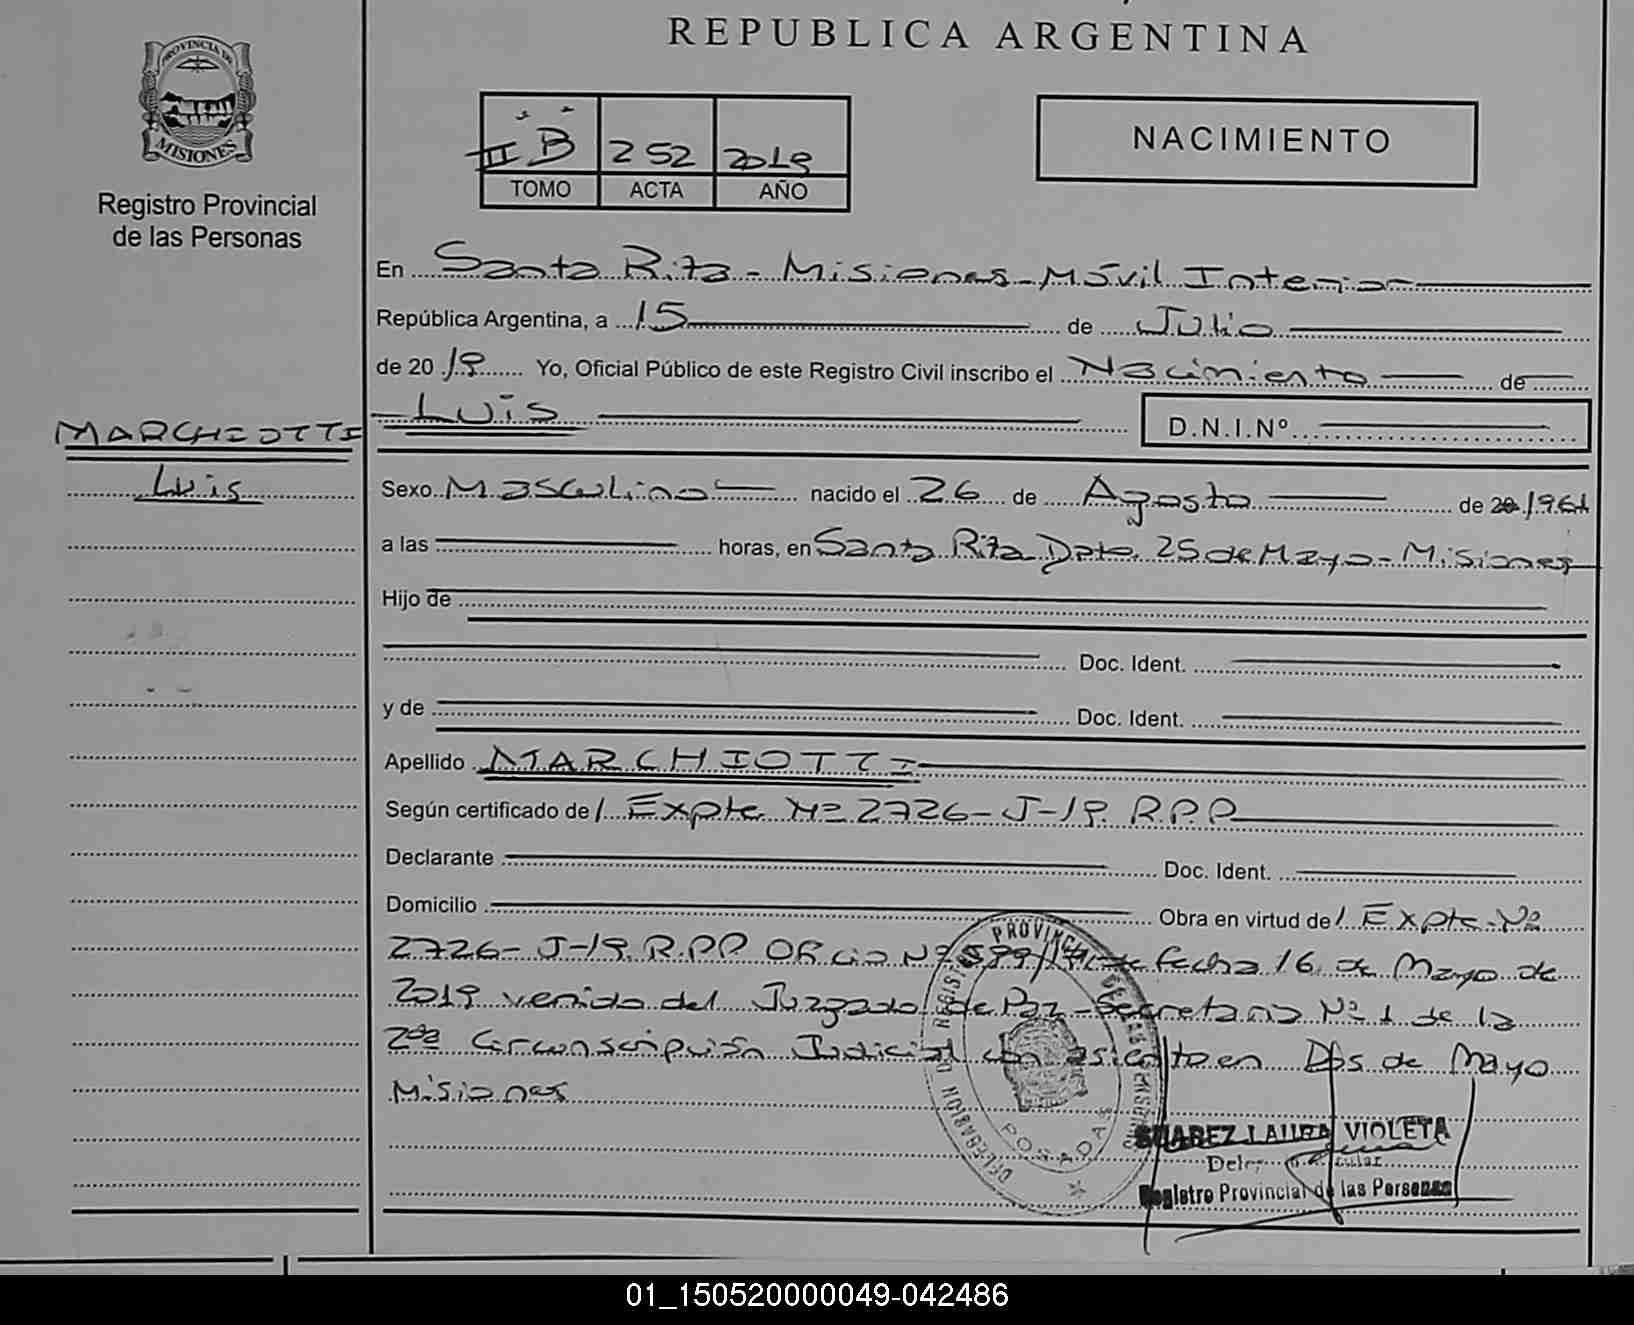 REPUBLICA ARGENTINA
PROVINCIA DE
MISIONES
Registro Provincial
de las Personas
III B 252 2019
TOMO ACTA AÑO
NACIMIENTO
En Santa Rita - Misiones - Móvil Interior
República Argentina, a 15 de Julio
de 2019 Yo, Oficial Público de este Registro Civil inscribo el Nacimiento de
MARCHIOTTI
Luis
LUIS
D.N.I.Nº
Sexo Masculino nacido el 26 de Agosto de 20 1961
a las horas, en Santa Rita Dpto. 25 de Mayo - Misiones
Hijo de
Doc. Ident.
y de Doc. Ident.
Apellido MARCHIOTTI
Según certificado de /. Expte Nº 2726-J-19 R.P.P
Declarante Doc. Ident.
Domicilio Obra en virtud de /. Expte. Nº
2726-J-19 R.P.P Oficio Nº de fecha 16 de Mayo de
2019 venido del Juzgado de Paz - Secretaria Nº 1 de la
2da Circunscripción Judicial con asiento en Dos de Mayo
Misiones
DELEGACION REGISTRO PROVINCIAL DE LAS PERSONAS
POSADAS
SUAREZ LAURA VIOLETA
Registro Provincial de las Personas
01_150520000049-042486